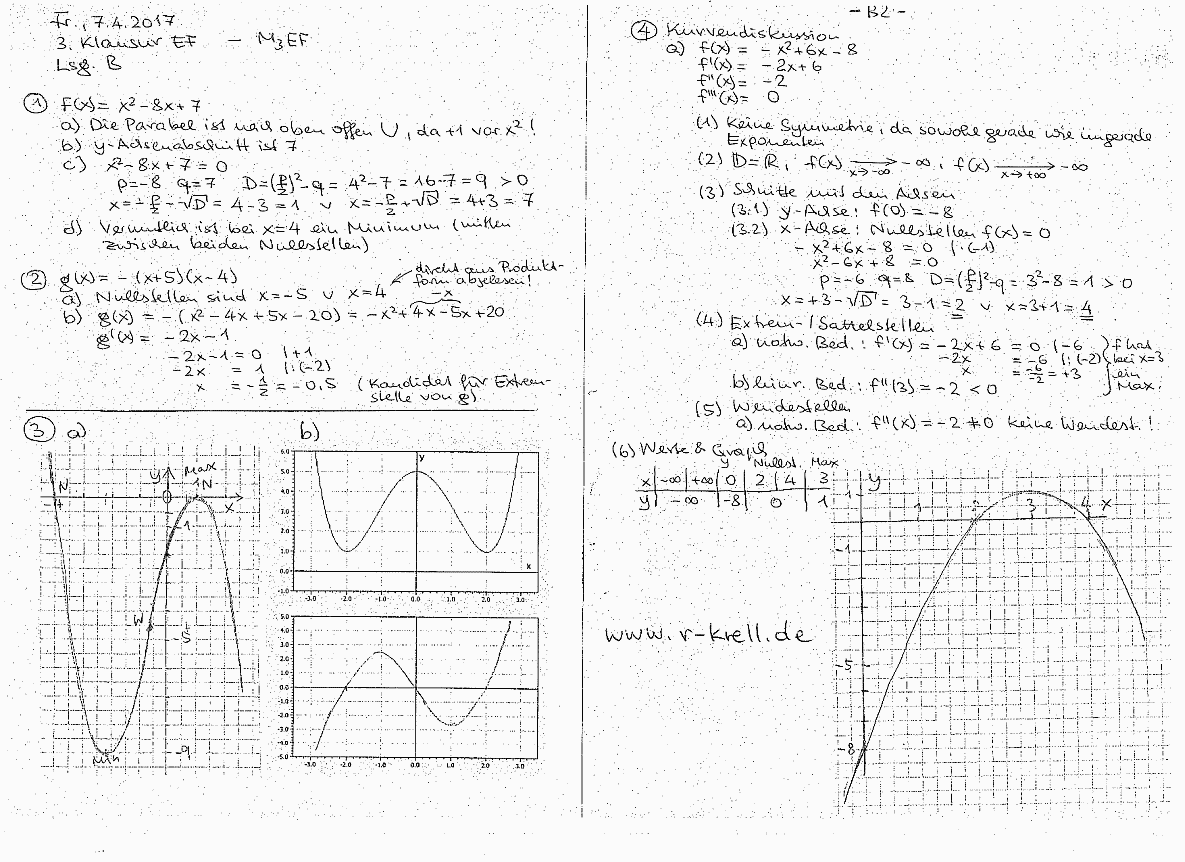 Fr., 7.4.2017
3. Klausur EF – M₃EF
Lsg. B
① f(x) = x²-8x+7
a) Die Parabel ist nach oben offen U, da +1 vor x²!
b) y-Achsenabschnitt ist 7
c) x²-8x+7=0
p=-8 q=7 D=(p/2)²-q = 4²-7 = 16-7 = 9 > 0
x=-p/2-√D = 4-3 = 1 v x=-p/2+√D = 4+3 = 7
d) Vermutlich ist bei x=4 ein Minimum (mitten
zwischen beiden Nullstellen)
② g(x) = -(x+5)(x-4)
direkt aus Produkt-
form abgelesen!
a) Nullstellen sind x=-5 v x=4
-x
b) g(x) = -(x²-4x+5x-20) = -x²+4x-5x+20
g'(x) = -2x-1
-2x-1 = 0 |+1
-2x = 1 |:(-2)
x = -1/2 = -0,5 (Kandidat für Extrem-
stelle von g)
③ a)
N
-7
y
Max
1N
x
0
-1
W
-5
-9
Min
b)
6.0
y
5.0
4.0
3.0
2.0
1.0
x
0.0
-1.0
-3.0 -2.0 -1.0 0.0 1.0 2.0 3.0
5.0
4.0
3.0
2.0
1.0
0.0
-1.0
-2.0
-3.0
-4.0
-5.0
-3.0 -2.0 -1.0 0.0 1.0 2.0 3.0
- B2 -
④ Kurvendiskussion
a) f(x) = -x²+6x-8
f'(x) = -2x+6
f''(x) = -2
f'''(x) = 0
(1) Keine Symmetrie, da sowohl gerade wie ungerade
Exponenten
(2) D=ℝ, f(x) → -∞, f(x) → -∞
x→-∞ x→+∞
(3) Schnitte mit den Achsen
(3.1) y-Achse: f(0) = -8
(3.2) x-Achse: Nullstellen f(x)=0
-x²+6x-8 = 0 |·(-1)
x²-6x+8 = 0
p=-6 q=8 D=(p/2)²-q = 3²-8 = 1 > 0
x = +3-√D = 3-1 = 2 v x=3+1 = 4
(4) Extrem-/Sattelstellen
a) notw. Bed.: f'(x) = -2x+6 = 0 |-6 } f hat
-2x = -6 |:(-2) bei x=3
x = -6/-2 = +3 ein
b) hinr. Bed.: f''(3) = -2 < 0 Max.
(5) Wendestellen
a) notw. Bed.: f''(x) = -2 ≠ 0 keine Wendest.!
(6) Werte & Graph
y Nullst. Max
x -∞ +∞ 0 2 4 3
y -∞ -8 0 1
y
1
1 2 3 4 x
-1
-5
-8
www.r-krell.de